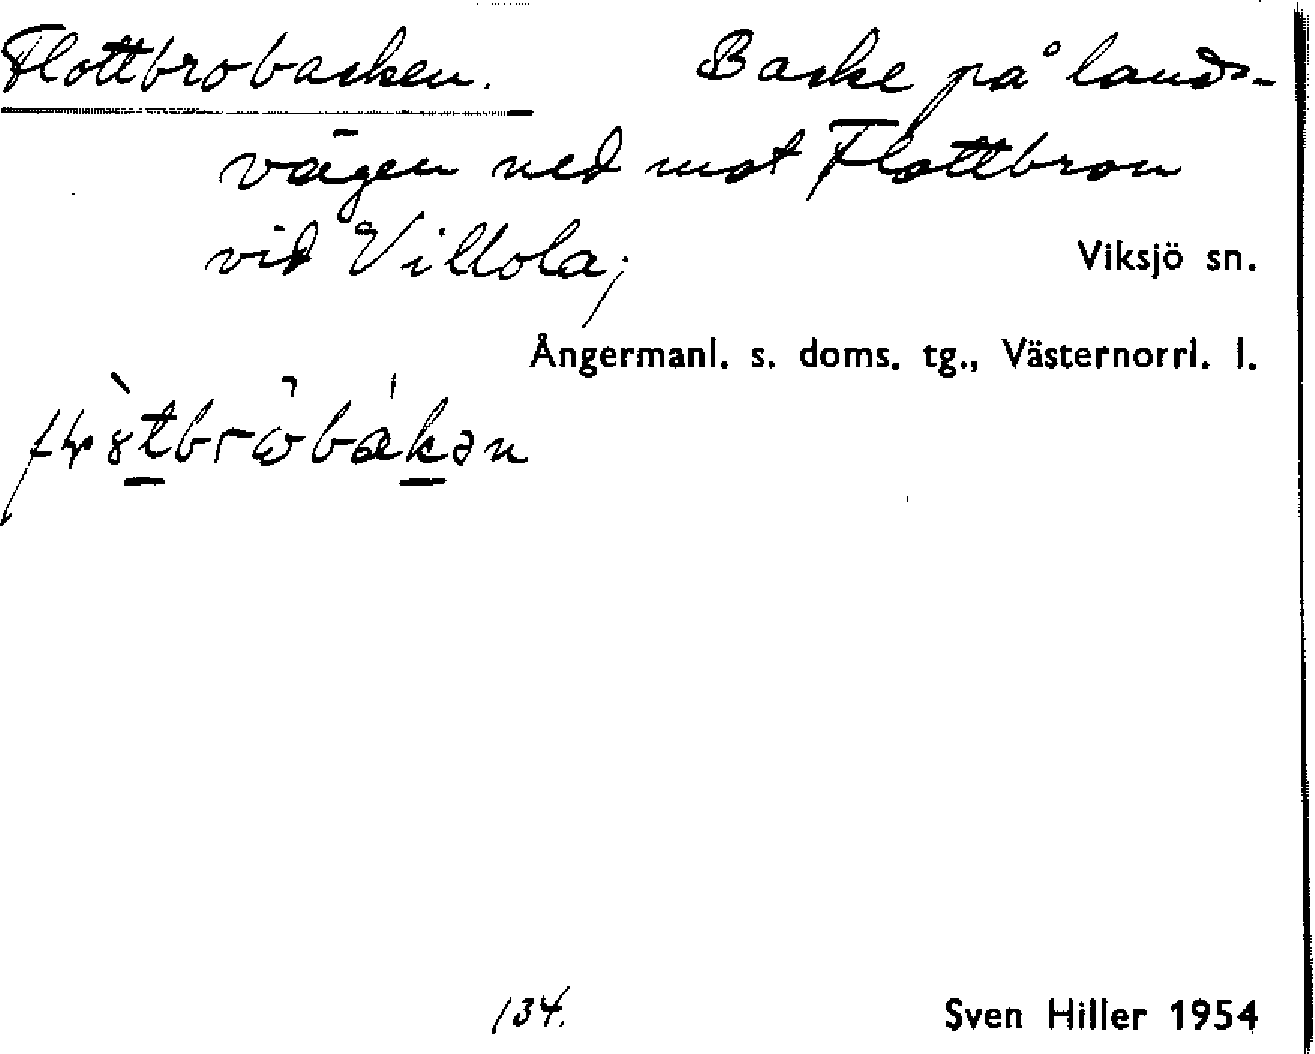 Flottbrobacken. Backe på lands-
vägen ned mot Flottbron
vid Villola;
Viksjö sn.
Ångermanl. s. doms. tg., Västernorrl. l.
134.
Sven Hiller 1954